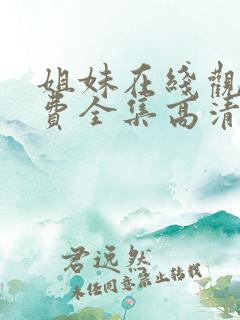 姐妹在綫觀
費全集高清
君远然
未经同意禁止转载